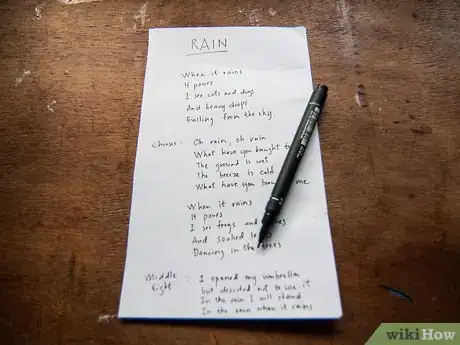 RAIN
When it rains
It pours
I see cats and dogs
And heavy drops
Falling from the sky
Chorus: Oh rain, oh rain
What have you bought
The ground is wet
The breeze is cold
What have you me
When it rains
It pours
I see frogs and
And soaked
Dancing in the trees
Middle Eight: I opened my umbrella
but decided not to use it
In the rain I will stand
In the rain when it rains
wikiHow